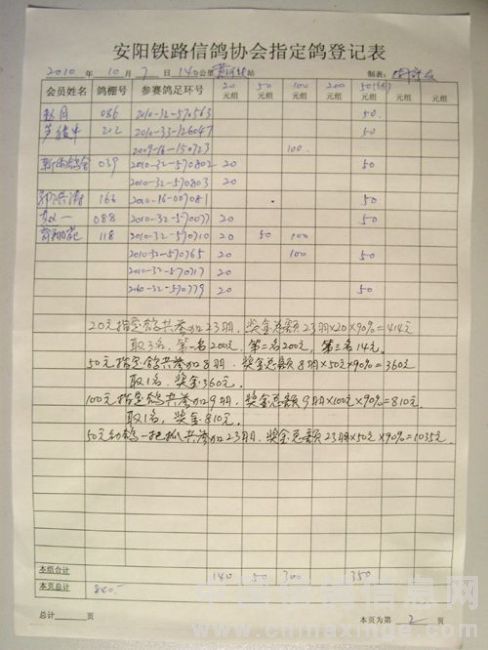 安阳铁路信鸽协会指定鸽登记表
2010 年 10 月 7 日 140公里 站 制表:
会员姓名 鸽棚号 参赛鸽足环号 20元组 50元组 100元组 200元组 50元组
086 2010-32-570563 50
222 2010-33-126047 50
2009-16-150723 100
039 2010-32-570802 20 50
2010-32-570803 20
166 2010-16-007081 50
088 2010-32-570077 20 50
118 2010-32-570710 20 50 100
2010-32-570765 100 50
2010-32-570717 20
2010-32-570779 20 50
20元指定鸽共参加23羽,奖金总额23羽×20×90%=414元
取3名,第一名200元,第二名200元,第三名14元.
50元指定鸽共参加8羽.奖金总额8羽×50元×90%=360元
取1名.奖金360元.
100元指定鸽共参加9羽.奖金总额9羽×100元×90%=810元
取1名,奖金810元.
50元幼鸽一把抓共参加23羽.奖金总额23羽×50元×90%=1035元.
本组合计 140 50 300 350
本页总计 840.-
总计 页 本页为第 2 页
www.chinaxinge.com